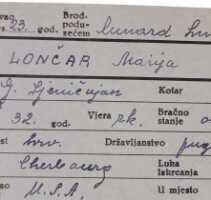 vao 23. god. Brod. podu- zećem Cunard Line
LONČAR Marija
G. Sjeničujan Kotar
32. god. Vjera rk. Bračno stanje
st hrv. Državljanstvo jug
Cherbourg Luka iskrcanja
ao U.S.A. U mjesto